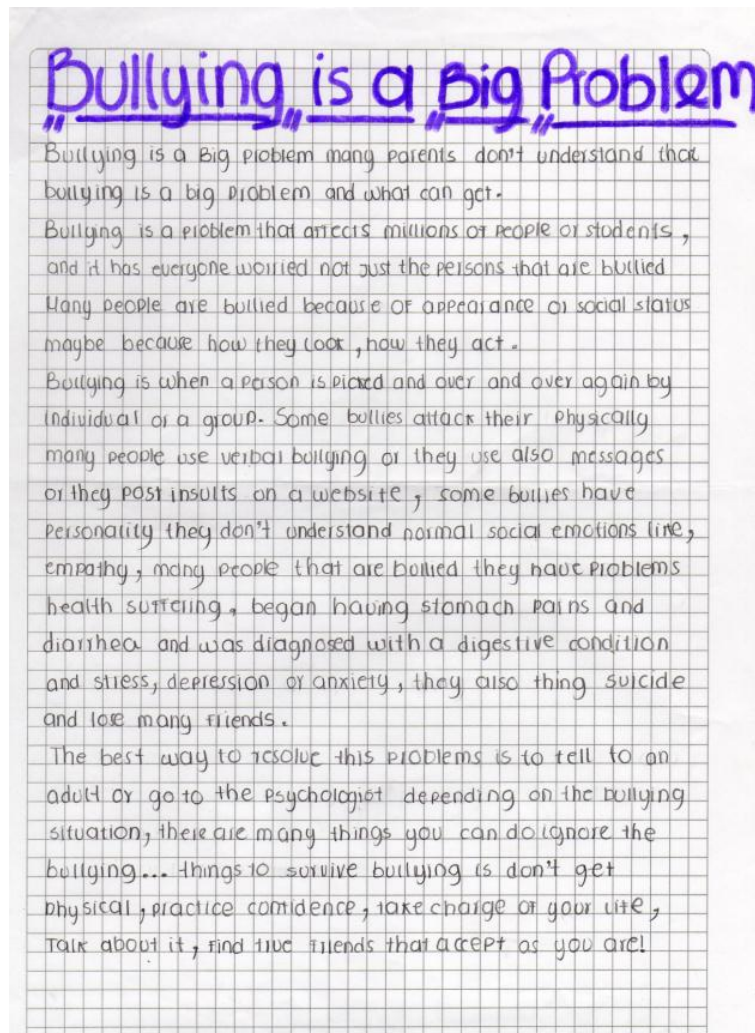 Bullying is a Big Problem
Bullying is a Big problem many parents don't understand that
bullying is a big problem and what can get.
Bullyng is a problem that affects millions of people or students,
and it has everyone worried not just the persons that are bullied
Many people are bullied because of appearance or social status
maybe because how they look, how they act.
Bullying is when a person is picked and over and over again by
individual or a group. Some bullies attack their physically
many people use verbal bullying or they use also messages
or they post insults on a website, some bullies have
personality they don't understand normal social emotions like,
empathy, many people that are bullied they have problems
health suffering, began having stomach pains and
diarrhea and was diagnosed with a digestive condition
and stress, depression or anxiety, they also thing suicide
and lose many friends.
The best way to resolve this problems is to tell to an
adult or go to the psychologist depending on the bullying
situation, there are many things you can do ignore the
bullying... things to survive bullying is don't get
physical, practice confidence, take charge of your life,
Talk about it, find true friends that accept as you are!